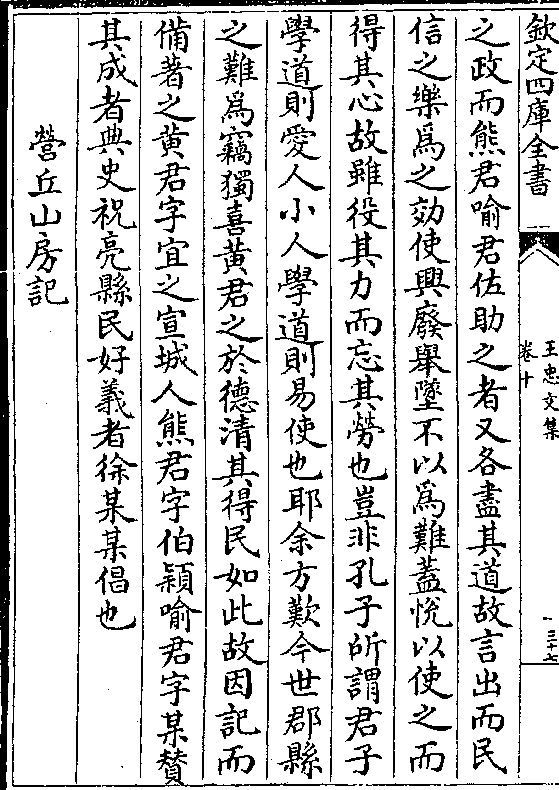 欽定四庫全書
王忠文集
卷十
三十七
之政而熊君喻君佐助之者又各盡其道故言出而民
信之樂為之効使興廢舉墜不以為難蓋悅以使之而
得其心故雖役其力而忘其勞也豈非孔子所謂君子
學道則愛人小人學道則易使也耶余方歎今世郡縣
之難為竊獨喜黃君之於德清其得民如此故因記而
備著之黃君字宜之宣城人熊君字伯穎喻君字某賛
其成者典史祝亮縣民好義者徐某某倡也
營丘山房記